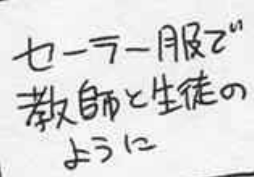 セーラー服で
教師と生徒の
ように